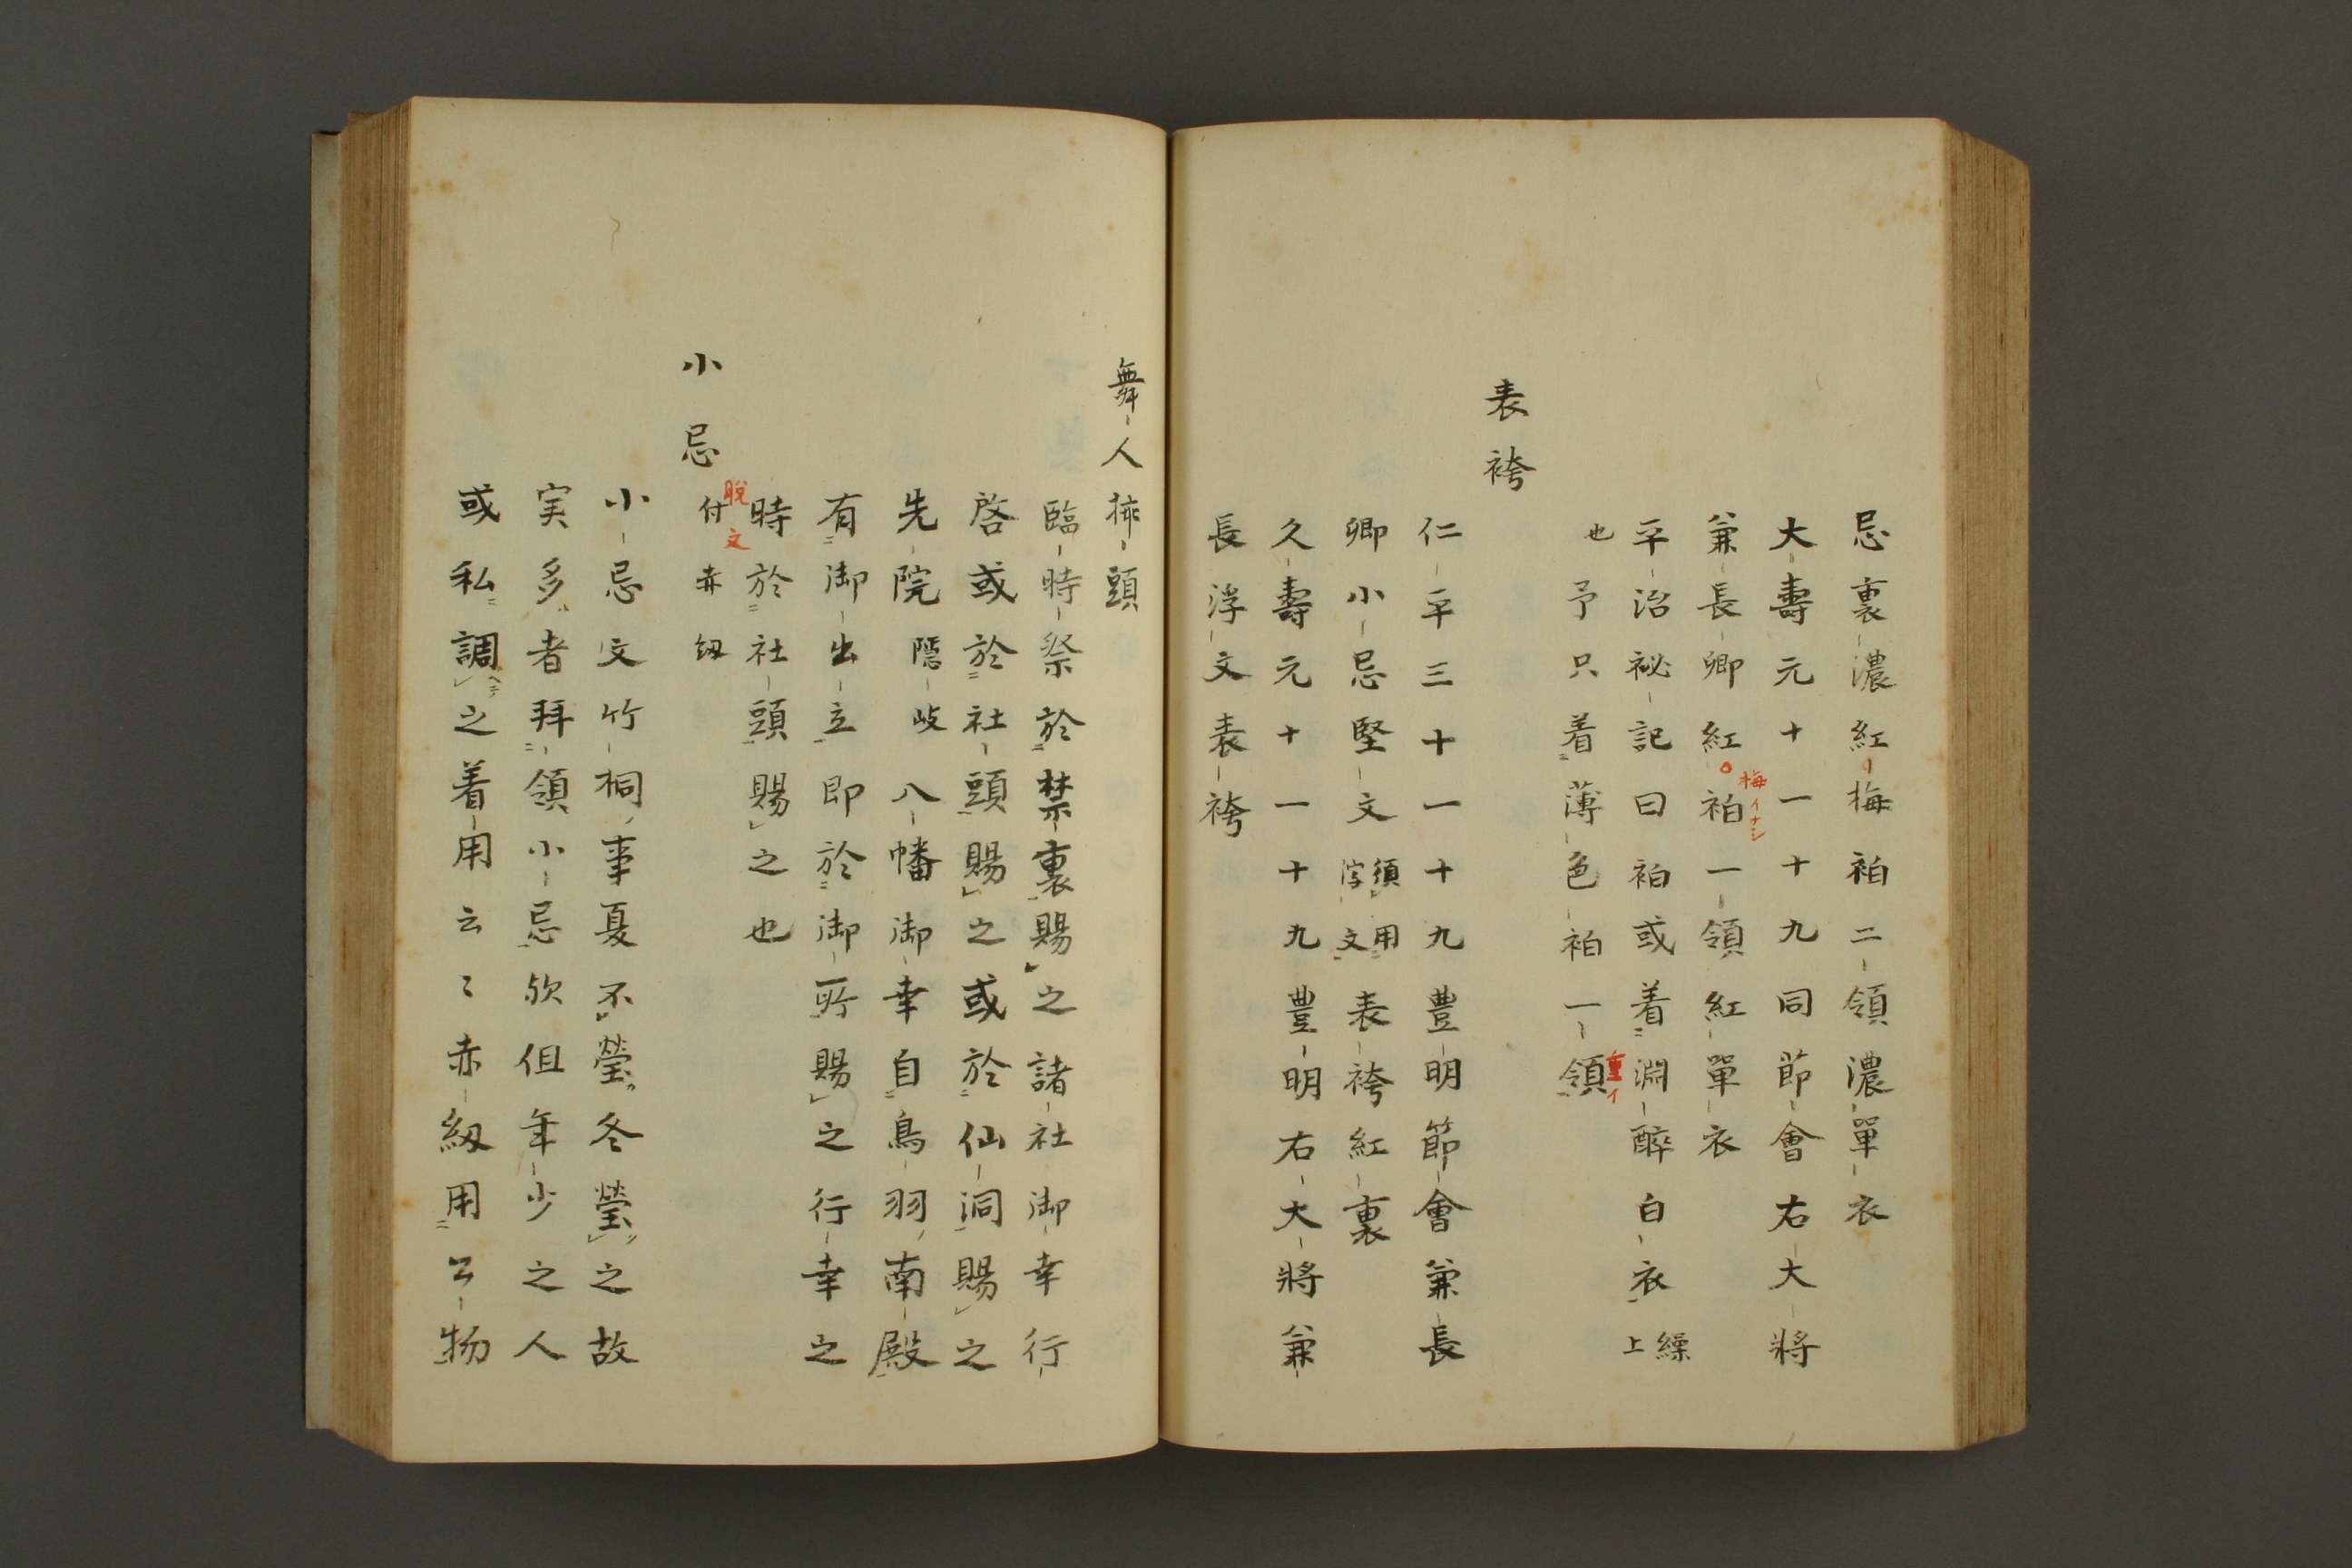 忌裏濃紅梅袙二領濃單衣
大壽元十一十九同節會右大將
兼長卿紅袙一領紅單衣
梅イナシ
平治祕記曰袙或着淵醉白衣繰上
重イ
也予只着薄色袙一領
表袴
仁平三十一十九豊明節會兼長
卿小忌堅文須用浮文表袴紅裏
久壽元十一十九豊明右大將兼
長浮文表袴
舞人揷頭
臨時祭於禁裏賜之諸社御幸行
啓或於社頭賜之或於仙洞賜之
先院隱岐八幡御幸自鳥羽南殿
有御出立即於御所賜之行幸之
時於社頭賜之也
小忌付赤紐
脫文
小忌文竹桐事夏不瑩冬瑩之故
実多者拜領小忌欤但年少之人
或私調之着用云〻赤紐用公物